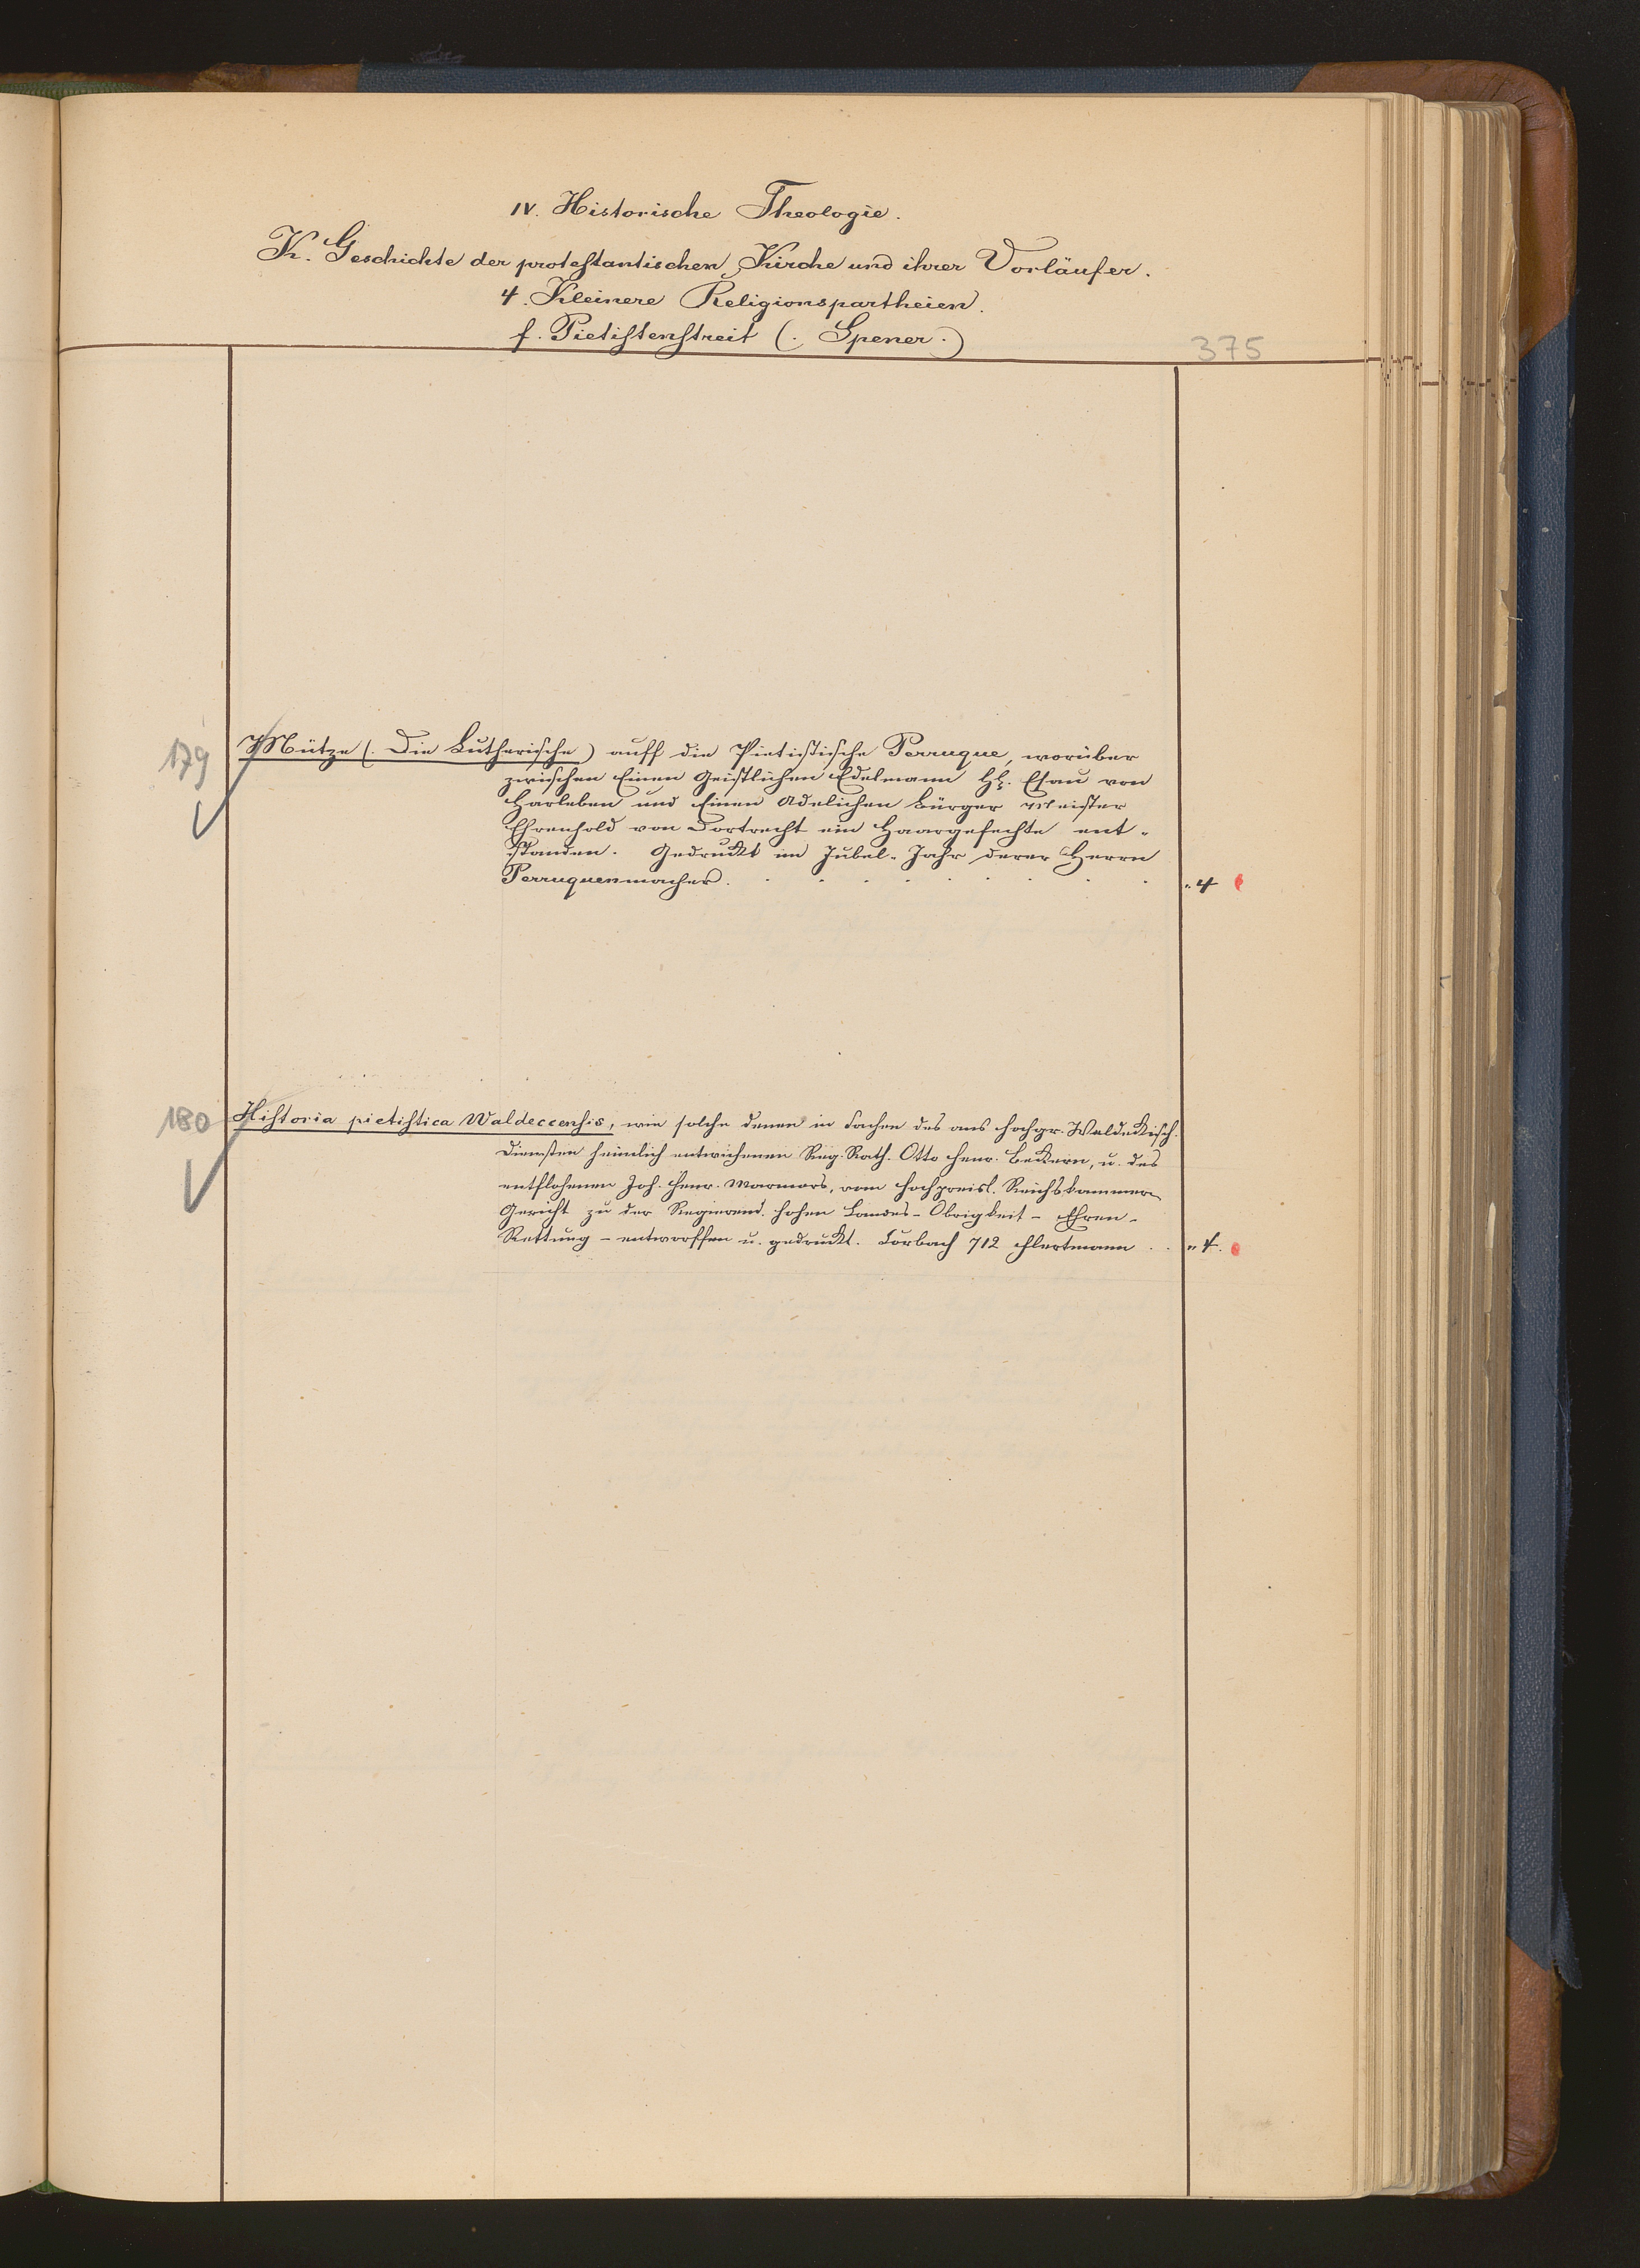 IV. Historische Theologie.
K. Geschichte der protestantischen Kirche und ihrer Vorläufer.
4. Kleinere Religionspartheien.
f. Pietistenstreit (. Spener .)
375
179
Mütze (. Die Lutherische) auff die Pietistische Perruque, worüber
zwischen Einen Geistlichen Edelmann H. Esau von
Harleben und Einen Adelichen Bürger Meister
Ehrenhold von Dortrecht ein Haargefechte ent-
standen. Gedruckt im Jubel-Jahr derer Herrn
Perruquenmacher. . . . . . . . . .
" 4
180
Historia pietistica Waldeccensis, wie solche denen in Sachen des aus hochgr. Waldeckisch.
Diensten heimlich entwichenen Reg. Rath. Otto Henr. Beckern, u. des
entflohenen Joh. Henr. Marmors, vom hochpreisl. Reichskammer
Gericht zu der Regierend. hohen Landes-Obrigkeit - Ehren-
Rettung - entworffen u. gedruckt. Corbach 712 Flertmann . .
" 4.